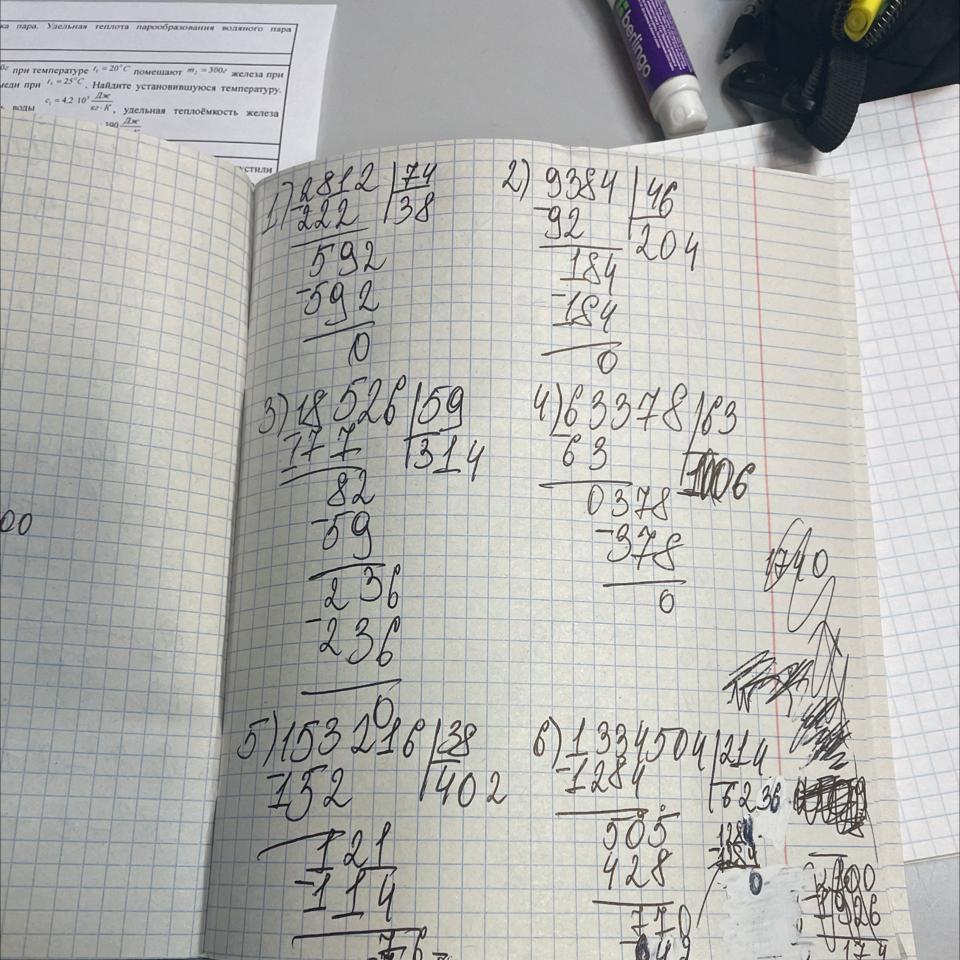 ка пара. Удельная теплота парообразования водяного пара
при температуре t₁ = 20°C помещают m₂ = 300г железа при
меди при t₃ = 25°C. Найдите установившуюся температуру.
воды c₁ = 4,2·10³ Дж/кг·К, удельная теплоёмкость железа
Дж
устили
berlingo
00
1) 2812 74
-222 38
592
-592
0
2) 9384 46
-92 204
184
-184
0
3) 18526 59
-177 314
82
-59
236
-236
0
4) 63378 63
-63 1006
0378
-378
0
1740
5) 153216 38
-152 402
121
-114
76
6) 1334504 214
-1284 6236
505
428
770
-1284
0
-1926
174